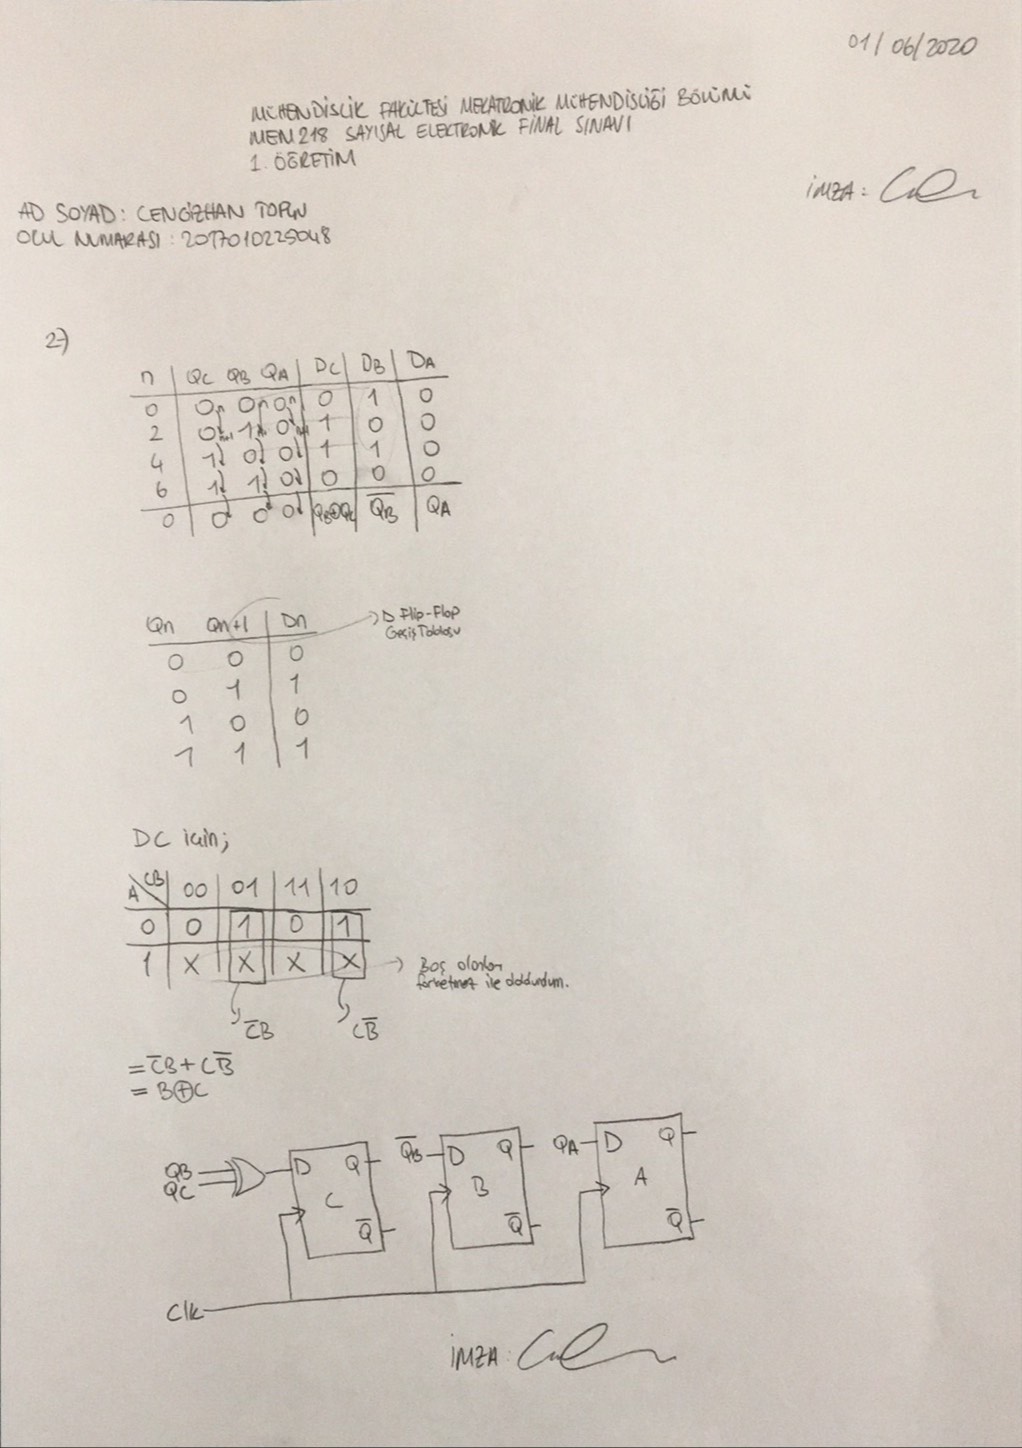 01/06/2020
MÜHENDİSLİK FAKÜLTESİ MEKATRONİK MÜHENDİSLİĞİ BÖLÜMÜ
MEM218 SAYISAL ELEKTRONİK FİNAL SINAVI
1. ÖĞRETİM
İMZA:
AD SOYAD: CENGİZHAN TOPÇU
OKUL NUMARASI: 2017010225048
2-)
n QC QB QA DC DB DA
0 0 0 0 0 1 0
2 0 1 0 1 0 0
4 1 0 0 1 1 0
6 1 1 0 0 0 0
0 0 0 0 QB⊕QC Q̅B̅ QA
Qn Qn+1 Dn
→ D Flip-Flop
Geçiş Tablosu
0 0 0
0 1 1
1 0 0
1 1 1
DC için;
A\CB 00 01 11 10
0 0 1 0 1
1 X X X X
→ Boş olanları
farketmez ile doldurdum.
C̅B CB̅
= C̅B + CB̅
= B⊕C
QB
QC
D Q
C
Q̅
Q̅B̅ D Q
B
Q̅
QA D Q
A
Q̅
Clk
İMZA: